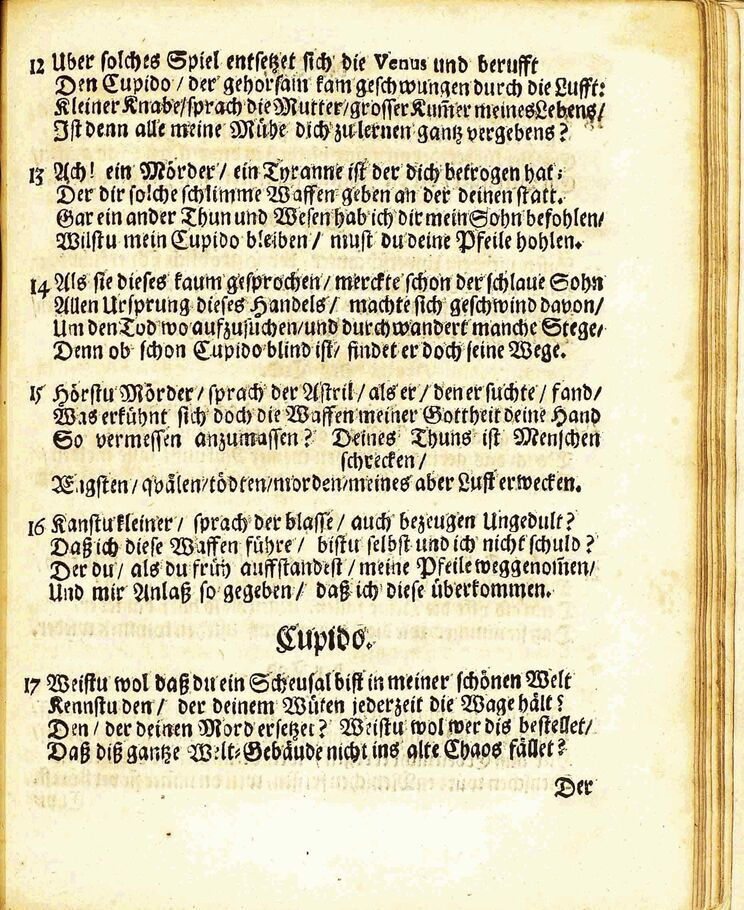 12 Uber solches Spiel entsetzet sich die Venus und berufft
Den Cupido / der gehorsam kam geschwungen durch die Lufft:
Kleiner Knabe/sprach die Mutter/grosser Kum̃er meines Lebens/
Ist denn alle meine Mühe dich zu lernen gantz vergebens?
13 Ach! ein Mörder / ein Tyranne ist der dich betrogen hat;
Der dir solche schlimme Waffen geben an der deinen statt.
Gar ein ander Thun und Wesen hab ich dir mein Sohn befohlen/
Wilstu mein Cupido bleiben / must du deine Pfeile hohlen.
14 Als sie dieses kaum gesprochen / merckte schon der schlaue Sohn
Allen Ursprung dieses Handels / machte sich geschwind davon/
Um den Tod wo aufzusuchen/und durchwandert manche Stege/
Denn ob schon Cupido blind ist/ findet er doch seine Wege.
15 Hörstu Mörder / sprach der Astril / als er / den er suchte / fand/
Was erkühnt sich doch die Waffen meiner Gottheit deine Hand
So vermessen anzumassen? Deines Thuns ist Menschen
schrecken /
Ængsten / qvälen/tödten/morden/meines aber Lust erwecken.
16 Kanstu kleiner / sprach der blasse / auch bezeugen Ungedult?
Daß ich diese Waffen führe / bistu selbst und ich nicht schuld?
Der du / als du früh auffstandest / meine Pfeile weggenom̃en/
Und mir Anlaß so gegeben / daß ich diese überkommen.
Cupido.
17 Weistu wol daß du ein Scheusal bist in meiner schönen Welt
Kennstu den / der deinem Wüten jederzeit die Wage hält?
Den / der deinen Mord ersetzet? Weistu wol wer dis bestellet/
Daß diß gantze Welt-Gebäude nicht ins alte Chaos fället?
Der